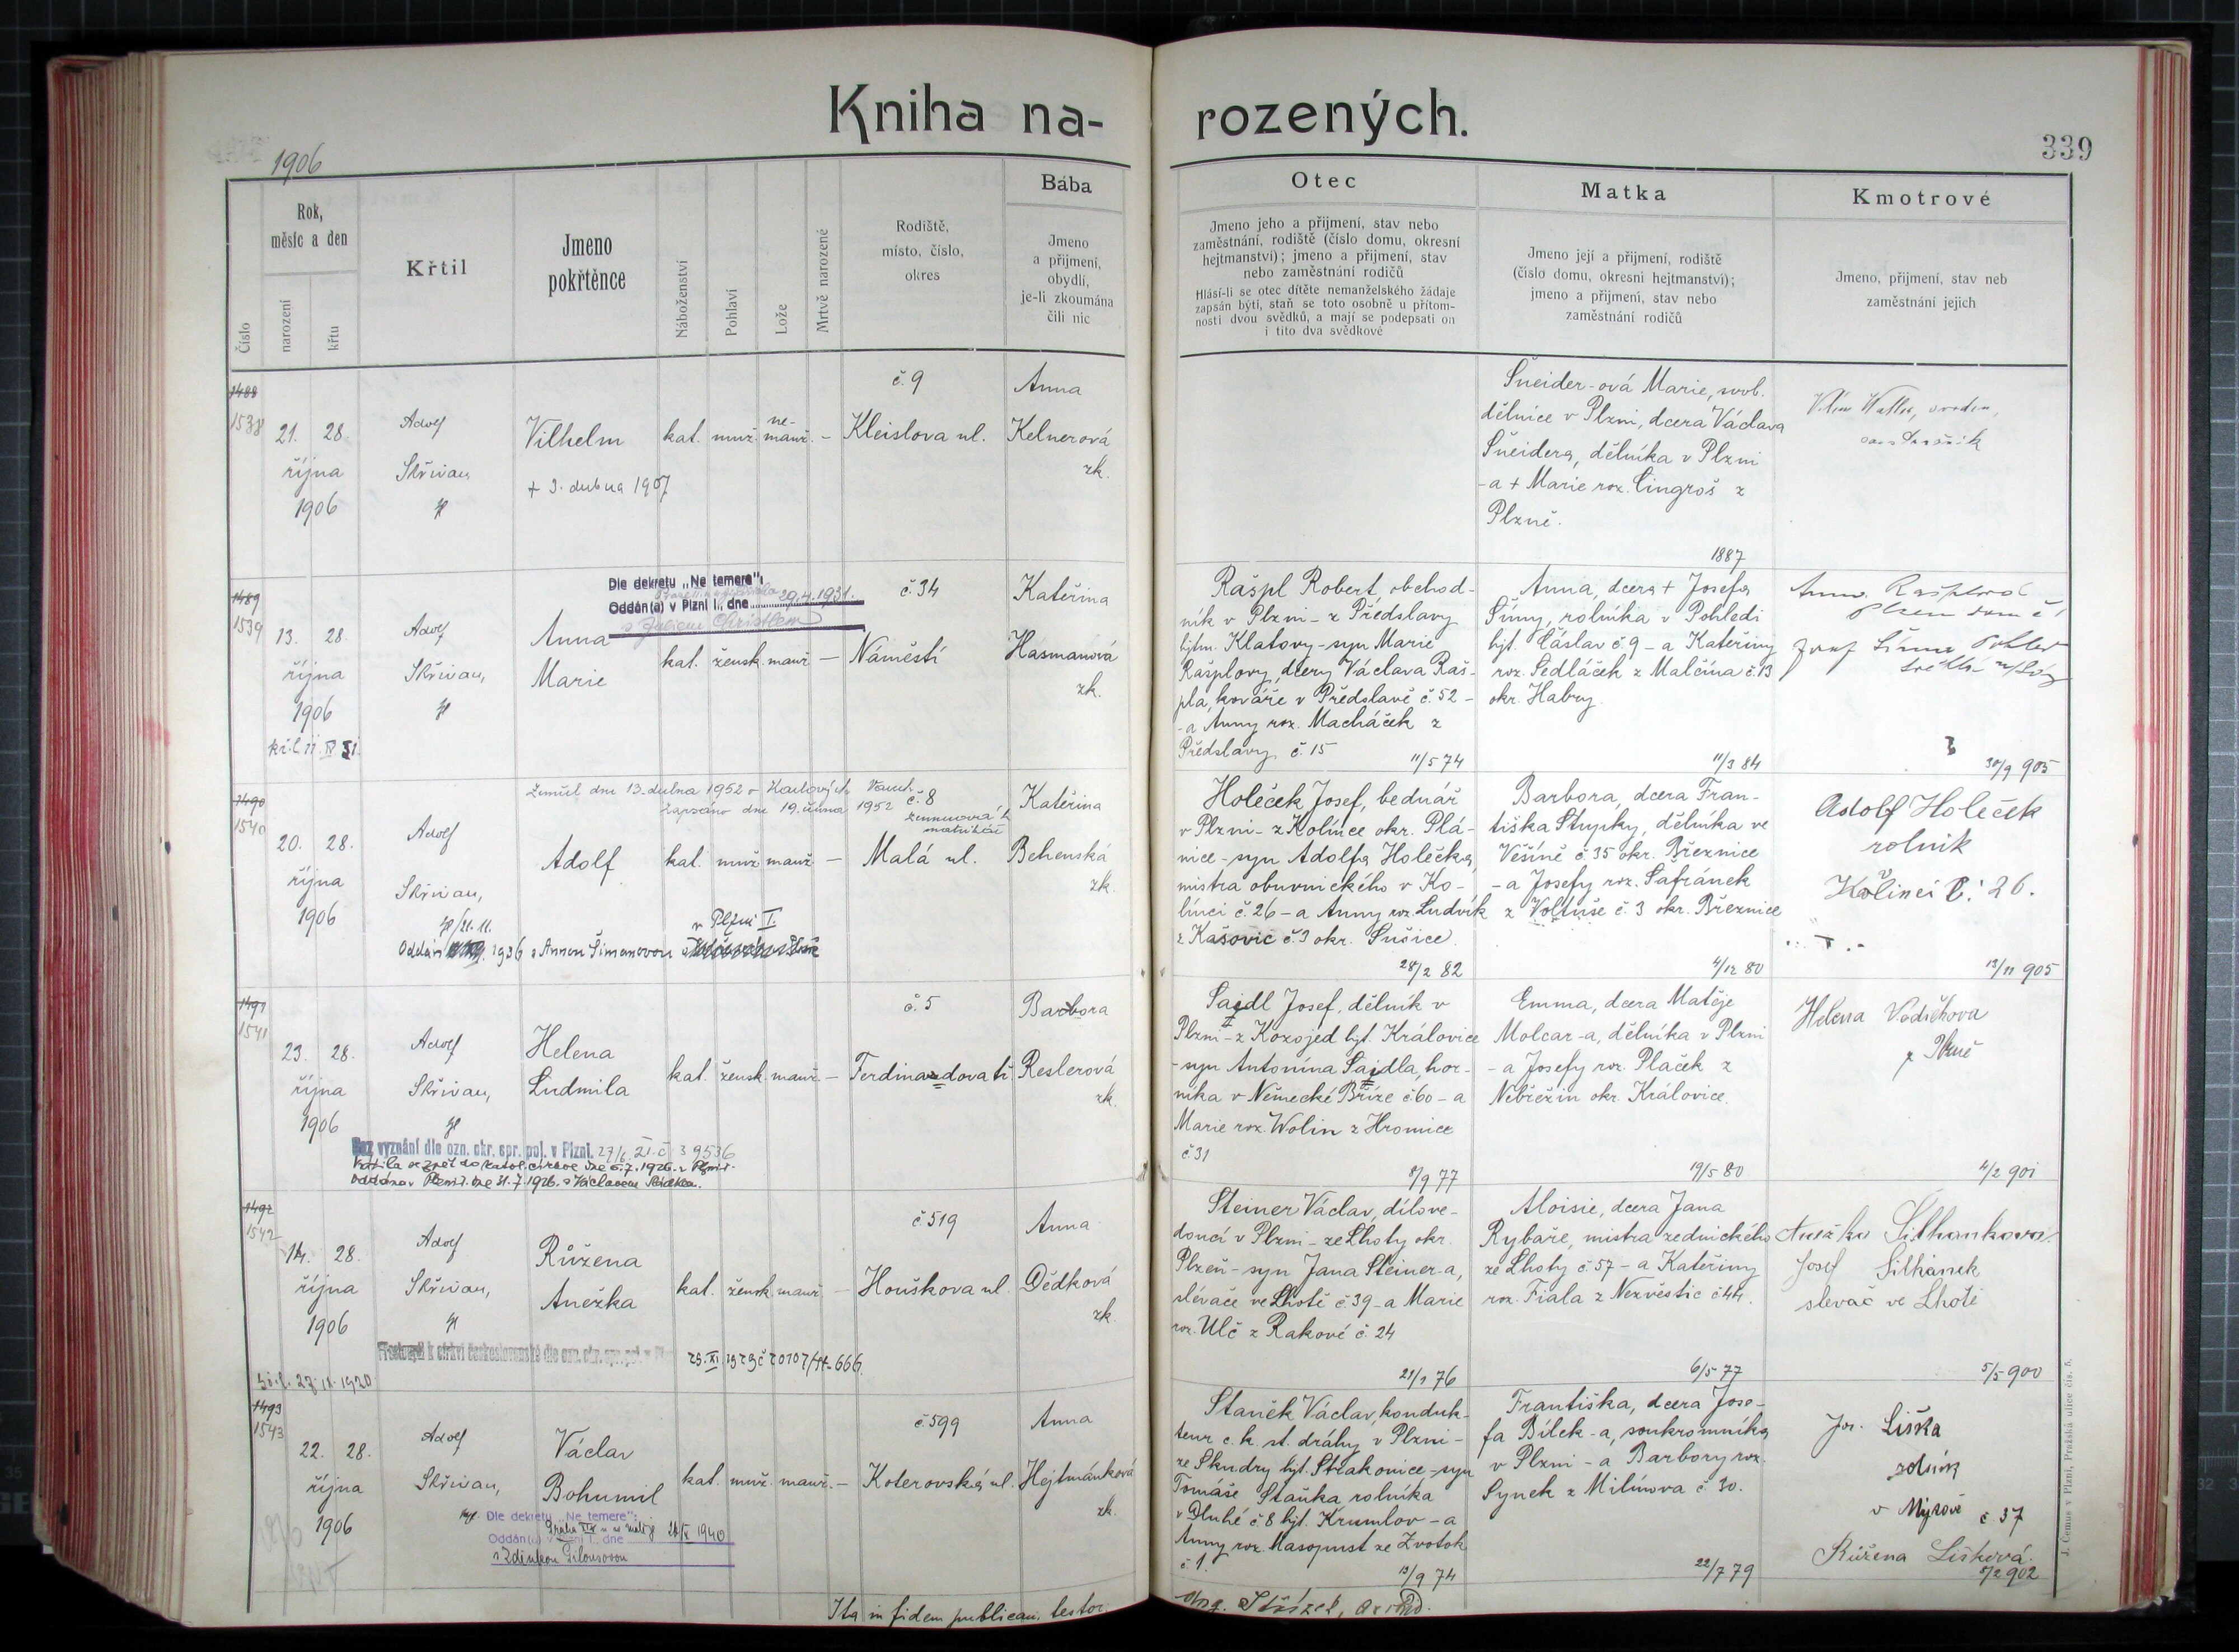 Kniha na-
rozených.
339
1906
Číslo
Rok,
měsíc a den
narození
křtu
Křtil
Jmeno
pokřtěnce
Náboženství
Pohlaví
Lože
Mrtvě narozené
Rodiště,
místo, číslo,
okres
Bába
Jmeno
a přijmení,
obydlí,
je-li zkoumána
čili nic
Otec
Jmeno jeho a přijmení, stav nebo
zaměstnání, rodiště (číslo domu, okresní
hejtmanství); jmeno a přijmení, stav
nebo zaměstnání rodičů
Hlásí-li se otec dítěte nemanželského žádaje
zapsán býti, staň se toto osobně u přítom-
nosti dvou svědků, a mají se podepsati on
i tito dva svědkové
Matka
Jmeno její a přijmení, rodiště
(číslo domu, okresni hejtmanství);
jmeno a přijmení, stav nebo
zaměstnání rodičů
Kmotrové
Jmeno, přijmení, stav neb
zaměstnání jejich
1488
1538
21. 28.
října
1906
Adolf
Skřivan,
Vilhelm
+ 3. dubna 1907
kat. muž. ne-
manž. –
č. 9
Kleislova ul.
Anna
Kelnerová
zk.
Šneider-ová Marie, svob.
dělnice v Plzni, dcera Václava
Šneidera, dělníka v Plzni
- a + Marie roz. Cingroš z
Plzně.
1887
1489
1539
13. 28.
října
1906
Adolf
Skřivan,
Dle dekretu „Ne temere":
Oddán(a) v Plzni I., dne 29.4.1931.
s Juliem Christlem
Anna
Marie
kat. žensk. manž. –
č. 34
Náměstí
Kateřina
Hasmanová
zk.
Rašpl Robert, obchod-
ník v Plzni - z Předslavy
hjtm. Klatovy - syn Marie
Rašplovy, dcery Václava Raš-
pla, kováře v Předslavě č. 52 -
- a Anny roz. Macháček z
Předslavy č. 15
11/5 74
Anna, dcera + Josefa
Šimy, rolníka v Pohledi
hjt. Čáslav č. 9 - a Kateřiny
roz. Sedláček z Malčína č. 13
okr. Habry.
11/3 84
Anna Rašplová
Josef
30/9 905
1490
1540
20. 28.
října
1906
Adolf
Skřivan,
Zemřel dne 13. dubna 1952 v Karlových Varech.
Zapsáno dne 19. června 1952
Adolf
kat. muž. manž. –
č. 8
Malá ul.
Kateřina
Behenská
zk.
v Plzni I.
Oddán 1936 s Annou Šimanovou
Holeček Josef, bednář
v Plzni - z Kolínce okr. Plá-
nice - syn Adolfa Holečka,
mistra obuvnického v Ko-
línci č. 26 - a Anny roz. Ludvík
z Kašovic č. 3 okr. Sušice.
28/2 82
Barbora, dcera Fran-
tiška Stupky, dělníka ve
Věšíně č. 35 okr. Březnice
- a Josefy roz. Šafránek
z Voltuše č. 3 okr. Březnice
4/12 80
Adolf Holeček
rolník
Kolinci č. 26.
13/11 905
1491
1541
23. 28.
října
1906
Adolf
Skřivan,
Helena
Ludmila
kat. žensk. manž. –
č. 5
Ferdinandova tř.
Barbora
Reslerová
zk.
Bez vyznání dle ozn. okr. spr. pol. v Plzni. 27/6. 21. č. 39536
Vrátila se zpět do katol. církve dne 6.7.1926 v Plzni.
Oddána v Plzni dne 31.7.1926 s Václavem
Saidl Josef, dělník v
Plzni - z Kozojed hjt. Královice
- syn Antonína Saidla, hor-
níka v Německé Bříze č. 60 - a
Marie roz. Wolin z Hromice
č. 31
8/9 77
Emma, dcera Matěje
Molcar-a, dělníka v Plzni
- a Josefy roz. Plaček z
Nebřežin okr. Královice.
19/5 80
Helena Vodičkova
z Plzně
4/2 901
1492
1542
14. 28.
října
1906
Adolf
Skřivan,
Růžena
Anežka
kat. žensk. manž. –
č. 519
Houškova ul.
Anna
Dědková
zk.
Přestoupil k církvi československé dle ozn. okr. spr. pol. v Plzni
27. IX. 1920
Steiner Václav, dílove-
doucí v Plzni - ze Lhoty okr.
Plzeň - syn Jana Steiner-a,
slévače ve Lhotě č. 39 - a Marie
roz. Ulč z Rakové č. 24
21/1 76
Aloisie, dcera Jana
Rybaře, mistra zednického
ze Lhoty č. 57 - a Kateřiny
roz. Fiala z Nezvěstic č. 44.
6/5 77
Anežka Silhankova
Josef Silhánek
slevač ve Lhotě
5/5 900
1493
1543
22. 28.
října
1906
Adolf
Skřivan,
Václav
Bohumil
kat. muž. manž. –
č. 599
Koterovská ul.
Anna
Hejtmánková
zk.
Dle dekretu „Ne temere":
Oddán(a) v Plzni I., dne 1940
s Zdeňkou
Staněk Václav, konduk-
teur c. k. st. dráhy v Plzni -
ze Skudry hjt. Strakonice - syn
Tomáše Staňka rolníka
v Dluhé č. 8 hjt. Krumlov - a
Anny roz. Masopust ze Zvotok
č. 1.
13/9 74
Františka, dcera Jose-
fa Bílek-a, soukromníka
v Plzni - a Barbory roz.
Synek z Milínova č. 30.
22/7 79
Jos. Liška
rolník
v Mytově č. 37
Růžena Lišková.
5/2 902
Ita in fidem publicam testor
J. Černus v Plzni, Pražská ulice čís. 5.